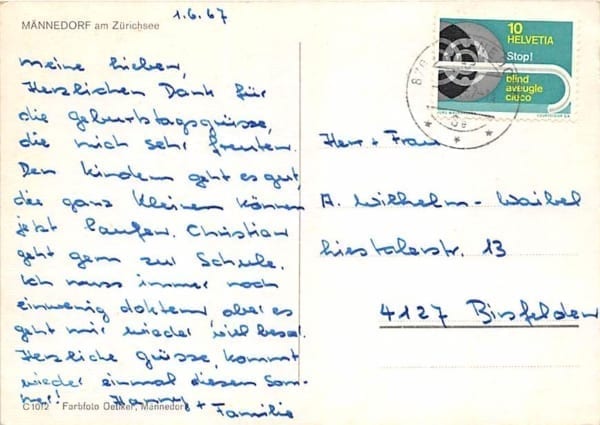 1.6.67
MÄNNEDORF am Zürichsee
meine lieben,
Herzlichen Dank für
die geburtstagsgrüsse,
die mich sehr freuten.
Den kindern geht es gut,
die ganz kleinen können
jetzt laufen. Christian
geht gern zur Schule.
Ich muss immer noch
einwenig doktern, aber es
geht mir wieder viel besser.
Herzliche grüsse, kommt
wieder einmal diesen Som-
mer! + Familie
C 1012 Farbfoto Oetiker, Männedorf
10
HELVETIA
Stop!
blind
aveugle
cieco
COURVOISIER SA
Herr + Frau
A. Wilhelm-Waibel
Liestalerstr. 13
4127 Birsfelden